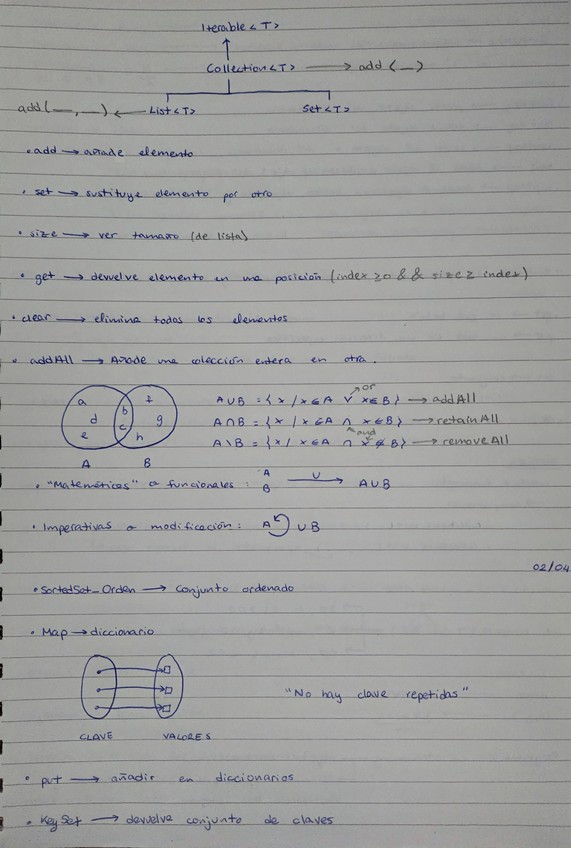 Iterable <T>
Collection <T> → add (_)
add(_,_) ← List <T> Set <T>
• add → añade elemento
• set → sustituye elemento por otro
• size → ver tamaño (de lista)
• get → devuelve elemento en una posición (index ≥ 0 && size ≥ index)
• clear → elimina todos los elementos
• addAll → Añade una colección entera en otra.
or
a d e b c f g h
A∪B = {x / x∈A ∨ x∈B} → addAll
A∩B = {x / x∈A ∧ x∈B} → retainAll
and
A\B = {x / x∈A ∩ x∉B} → removeAll
A B
• "Matemáticas" o funcionales: A B ∪ → A∪B
• Imperativas o modificación: A ∪ B
02/04
• SortedSet_Orden → conjunto ordenado
• Map → diccionario
"No hay clave repetidas"
CLAVE VALORES
• put → añadir en diccionarios
• KeySet → devuelve conjunto de claves